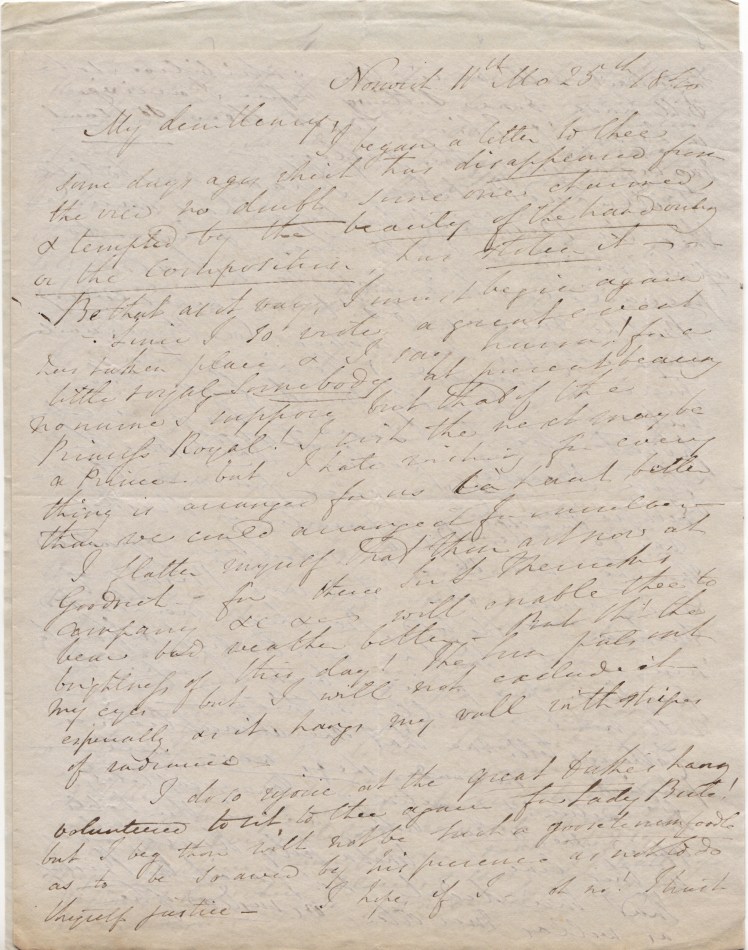 Norwich 11th Mo 25th 1840
My dear Henry, I began a letter to thee
some days ago which has disappeared from
the vice no doubt some one charmed,
& tempted by the beauty of the hand writing
or the composition, has stolen it —
Be that as it may, I must begin again
Since I so wrote a great event
has taken place & I say hurra! for a
little royal somebody at present bearing
no name I suppose but that of the
Princess Royal! I wish the next may be
a Prince — but I hate wishing for every
thing is arranged for us better
than we could arrange it for ourselves —
I flatter myself that thou art now at
Goodrich — for there Sir S Meyrick's
company &c &c will enable thee to
bear bad weather better — But oh! the
brightness of this day! The sun puts out
my eyes but I will not exclude it
especially as it hangs my wall with stripes
of radiance
I do so rejoice at the great Duke's having
volunteered to sit to thee again for Lady Burdett!
but I beg thou wilt not be such a goose
as to be so awed by his presence as not to do
thyself justice — I hope if I oh no! I trust